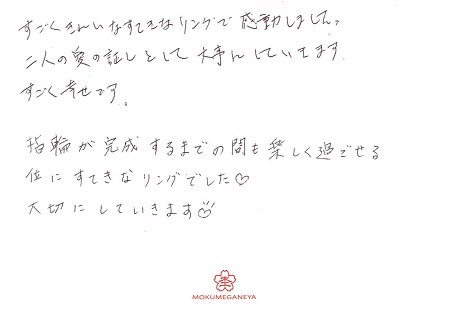 すごくきれいなすてきなリングで感動しました。
二人の愛の証しとして大事にしていきます。
すごく幸せです。
指輪が完成するまでの間も楽しく過ごせる
位にすてきなリングでした♡
大切にしていきます
MOKUMEGANEYA